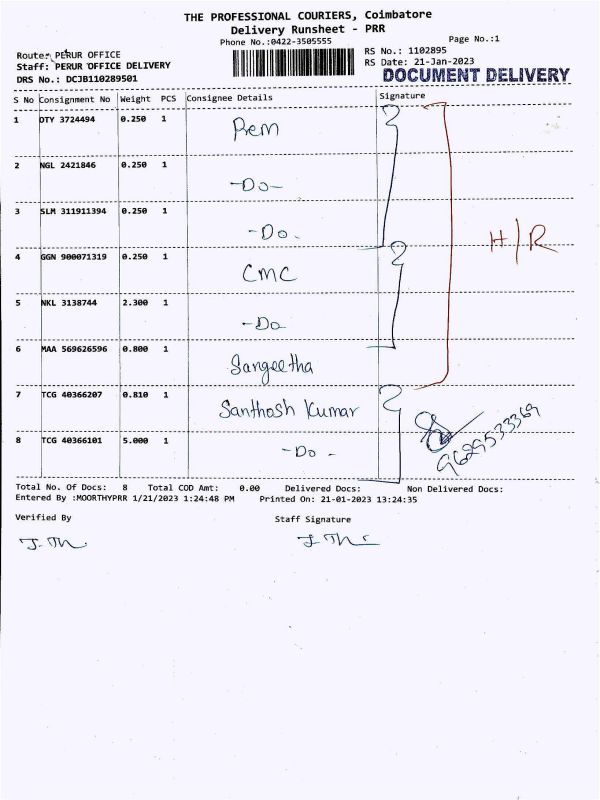 THE PROFESSIONAL COURIERS, Coimbatore
Delivery Runsheet - PRR
Phone No.:0422-3505555
Page No.:1
Route: PERUR OFFICE
RS No.: 1102895
Staff: PERUR OFFICE DELIVERY
RS Date: 21-Jan-2023
DRS No.: DCJB110289501
DOCUMENT DELIVERY
S No Consignment No Weight PCS Consignee Details Signature
1 DTY 3724494 0.250 1 Prem
2 NGL 2421846 0.250 1 -Do-
3 SLM 311911394 0.250 1 -Do.
H/R
4 GGN 900071319 0.250 1 CMC
5 NKL 3138744 2.300 1 -Do
6 MAA 569626596 0.800 1 Sangeetha
7 TCG 40366207 0.810 1 Santhosh Kumar
9629533369
8 TCG 40366101 5.000 1 -Do-
Total No. Of Docs: 8 Total COD Amt: 0.00 Delivered Docs: Non Delivered Docs:
Entered By :MOORTHYPRR 1/21/2023 1:24:48 PM Printed On: 21-01-2023 13:24:35
Verified By Staff Signature